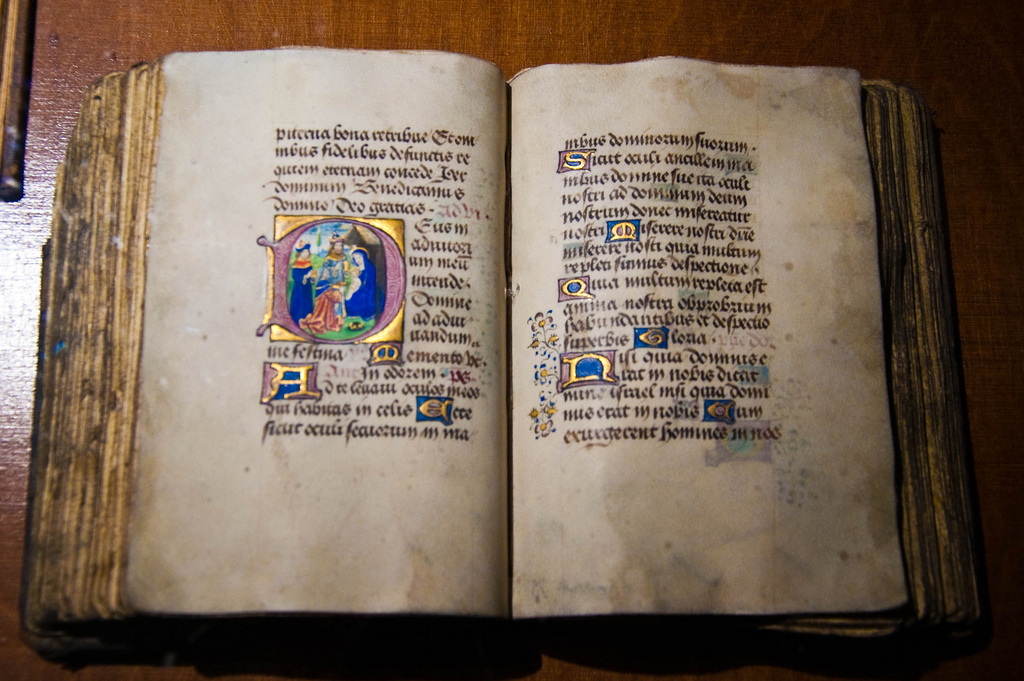 piterna bona retribue Et om
nibus fidelibus defunctis re
quiem eternam concede Per
dominum Benedicamus
domino Deo gratias ad vi
Deus in
adiutori
um meū
intende
Domine
ad adiu
uandum
me festina Memento
Ant In odorem ps
Ad te leuaui oculos meos
qui habitas in celis Ecce
sicut oculi seruorum in ma
nibus dominorum suorum
Sicut oculi ancille in ma
nibus domine sue ita oculi
nostri ad dominum deum
nostrum donec misereatur
nostri Miserere nostri dn̄e
miserere nostri quia multum
repleti sumus despectione
Quia multum repleta est
anima nostra obprobrium
habundantibus et despectio
superbis Gloria
Nisi quia dominus e
rat in nobis dicat
nunc israel nisi quia domi
nus erat in nobis Cum
exurgerent homines in nos